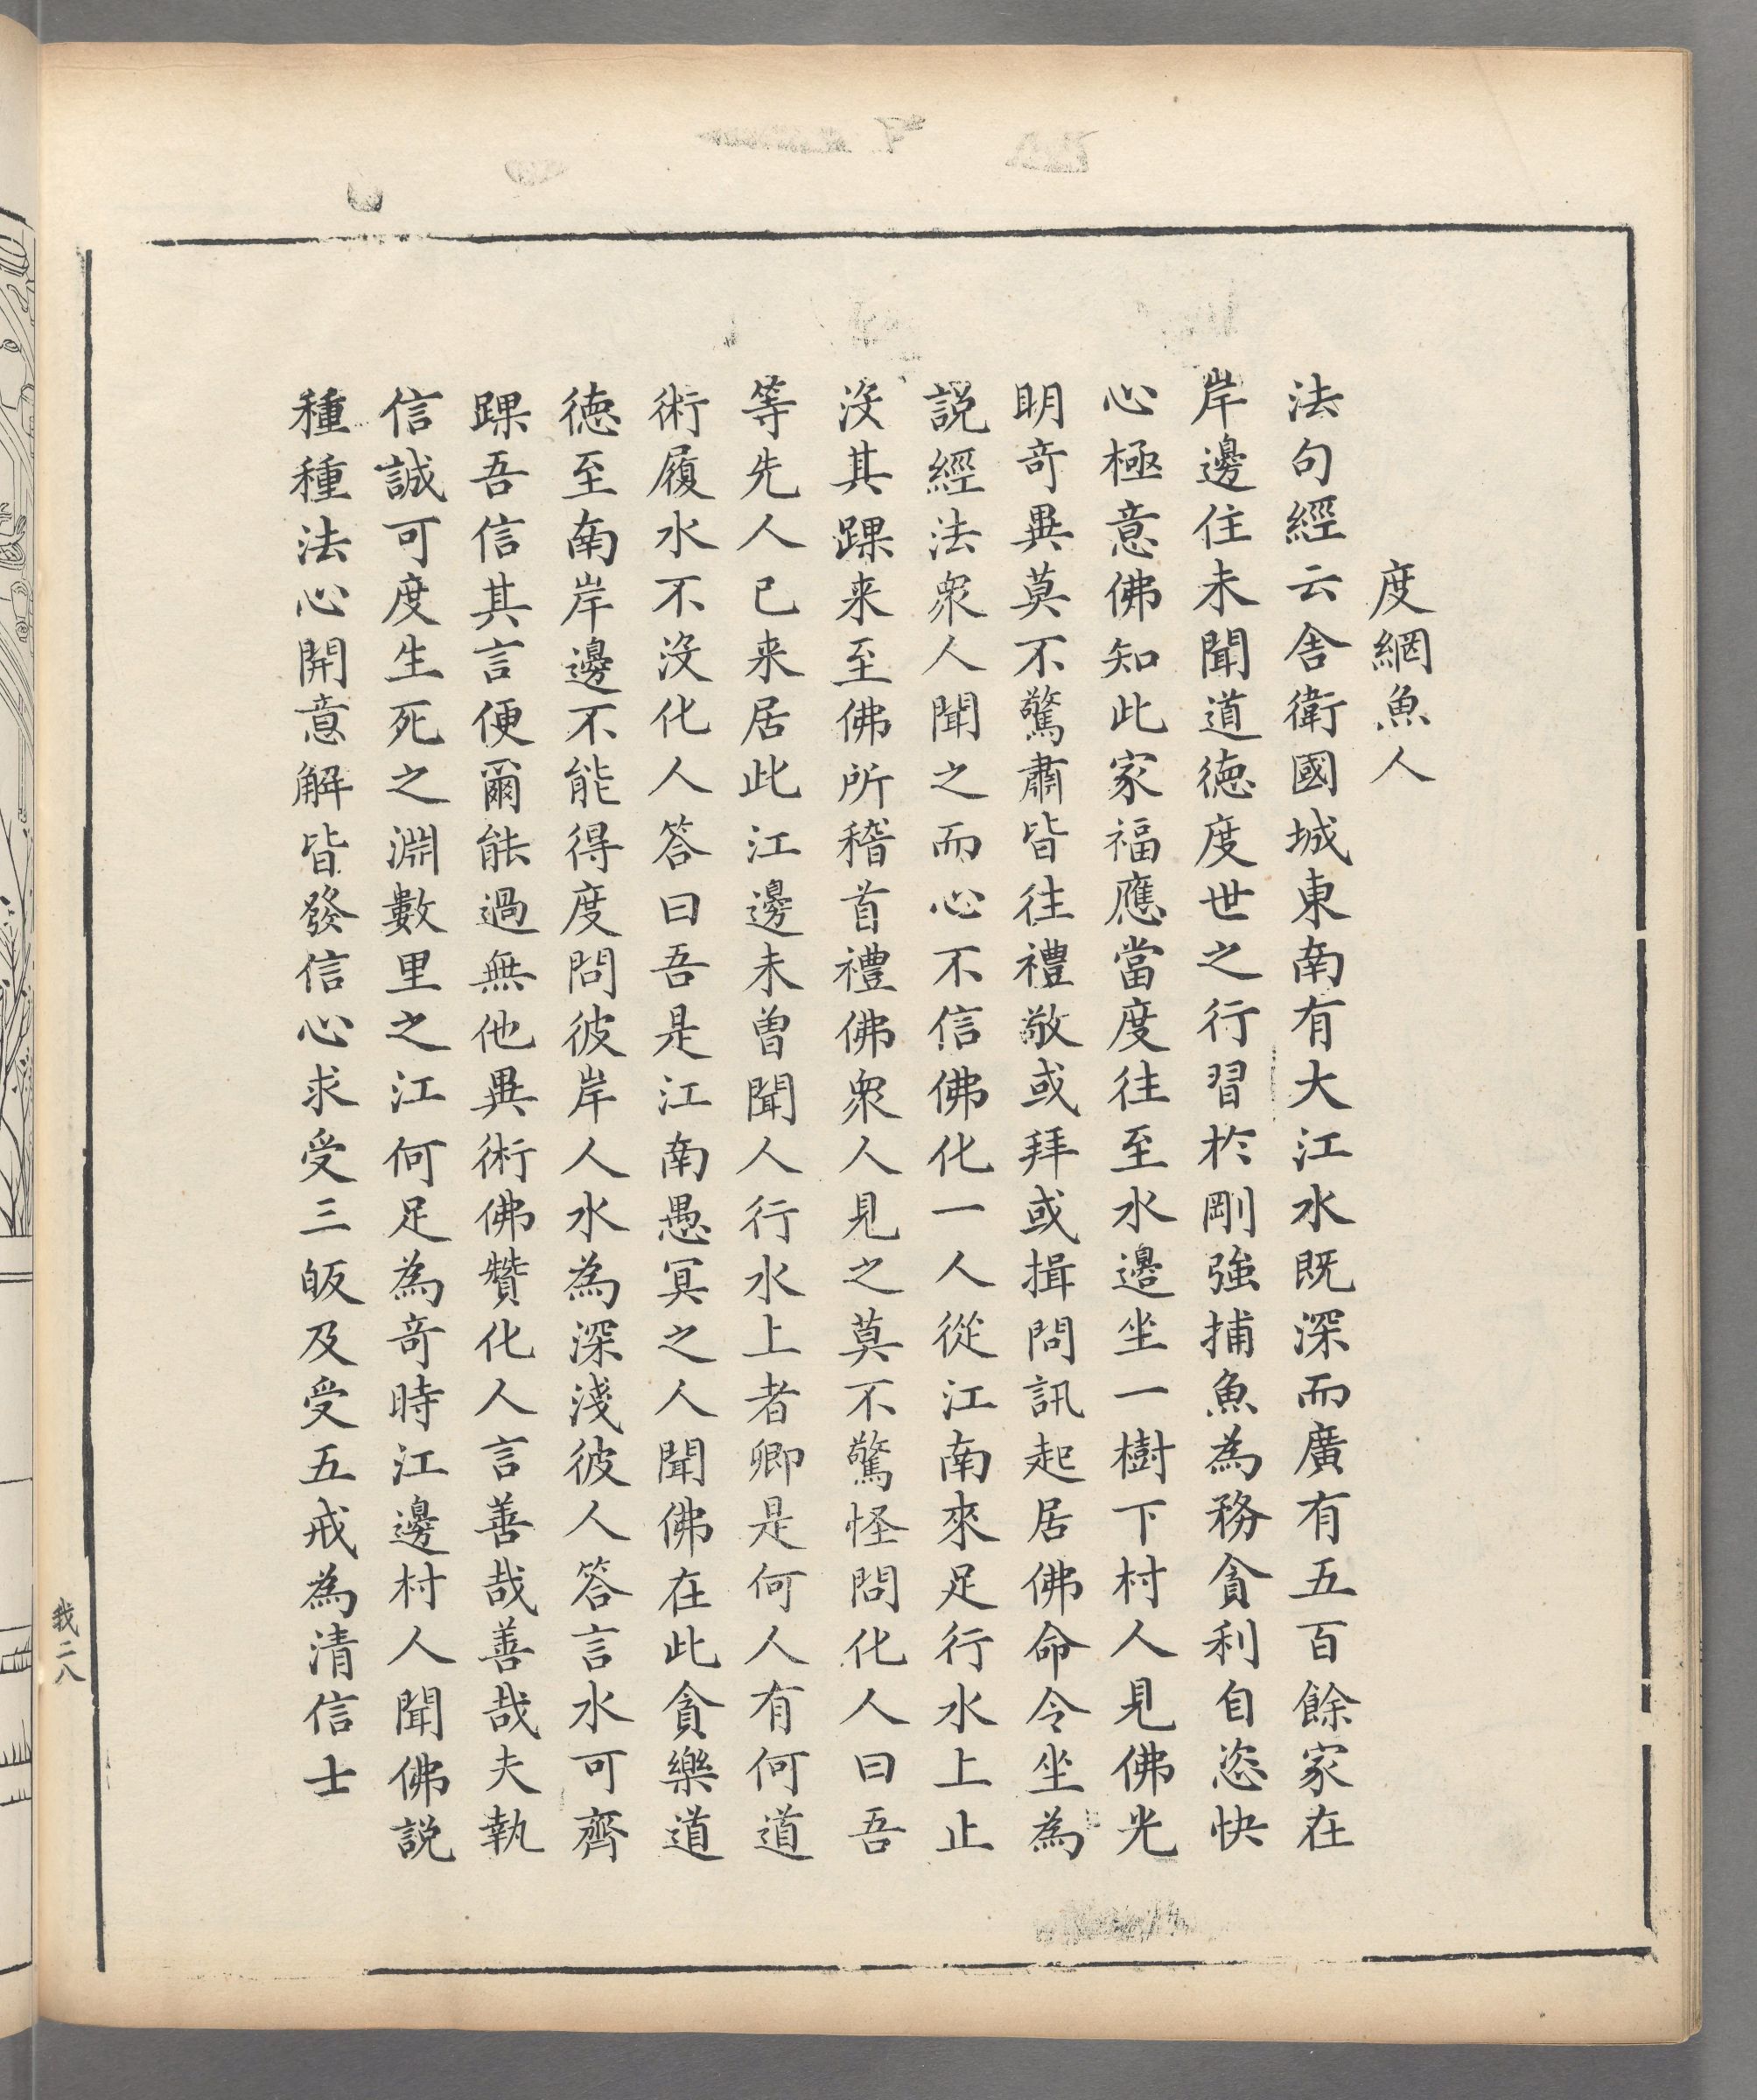 度網魚人
法句經云舍衛國城東南有大江水既深而廣有五百餘家在
岸邊住未聞道徳度世之行習於剛強捕魚為務貪利自恣快
心極意佛知此家福應當度往至水邊坐一樹下村人見佛光
明竒異莫不驚肅皆往禮敬或拜或揖問訊起居佛命令坐為
説經法衆人聞之而心不信佛化一人從江南來足行水上止
沒其踝来至佛所稽首禮佛衆人見之莫不驚怪問化人曰吾
等先人已来居此江邊未曽聞人行水上者卿是何人有何道
術履水不沒化人答曰吾是江南愚冥之人聞佛在此貪樂道
徳至南岸邊不能得度問彼岸人水為深淺彼人答言水可齊
踝吾信其言便爾能過無他異術佛贊化人言善哉善哉夫執
信誠可度生死之淵數里之江何足為竒時江邊村人聞佛説
種種法心開意解皆發信心求受三皈及受五戒為清信士
我二八